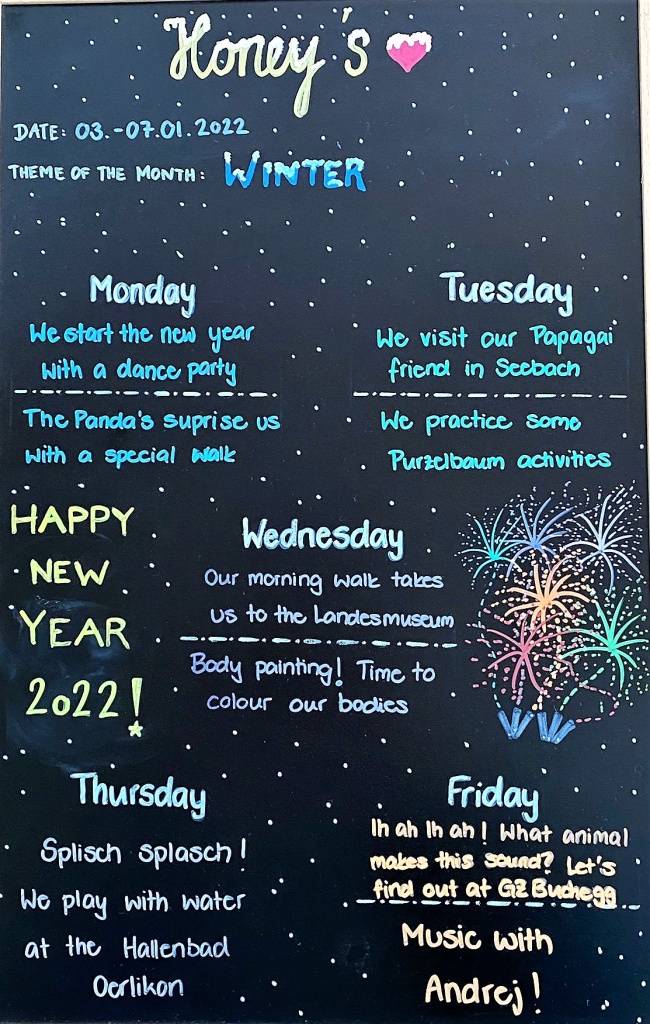 Honey's
DATE: 03.-07.01.2022
THEME OF THE MONTH: WINTER
Monday
We start the new year
with a dance party
The Panda's suprise us
with a special walk
Tuesday
We visit our Papagai
friend in Seebach
We practice some
Purzelbaum activities
HAPPY
NEW
YEAR
2022!
Wednesday
Our morning walk takes
us to the Landesmuseum
Body painting! Time to
colour our bodies
Thursday
Splisch splasch!
We play with water
at the Hallenbad
Oerlikon
Friday
Ih ah Ih ah! What animal
makes this sound? Let's
find out at GZ Buchegg
Music with
Andrej!